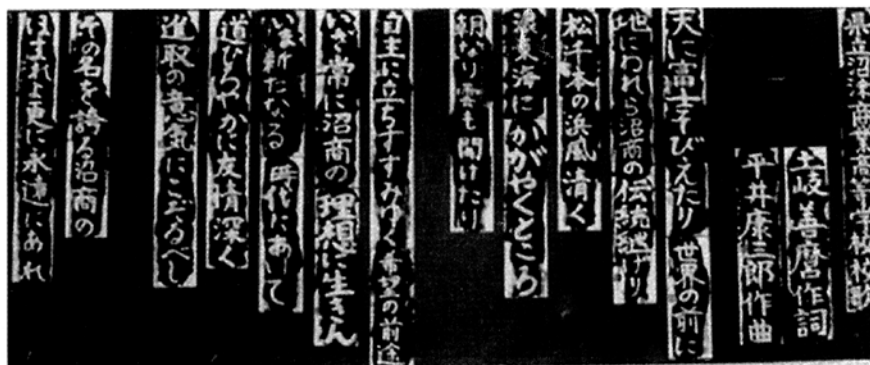 県立沼津商業高等学校校歌
土岐善麿作詞
平井康三郎作曲
天に富士そびえたり 世界の前に
地にわれら沼商の伝統継げり
松千本の浜風清く
波東海にかがやくところ
朝なり雲も開けたり
自主に立ちすすみゆく希望の前途
いざ常に沼商の理想に生きん
いま新たなる 時代にあして
道ひろやかに友情深く
進取の意気にこぞるべし
その名を誇る沼商の
ほまれよ更に永遠にあれ